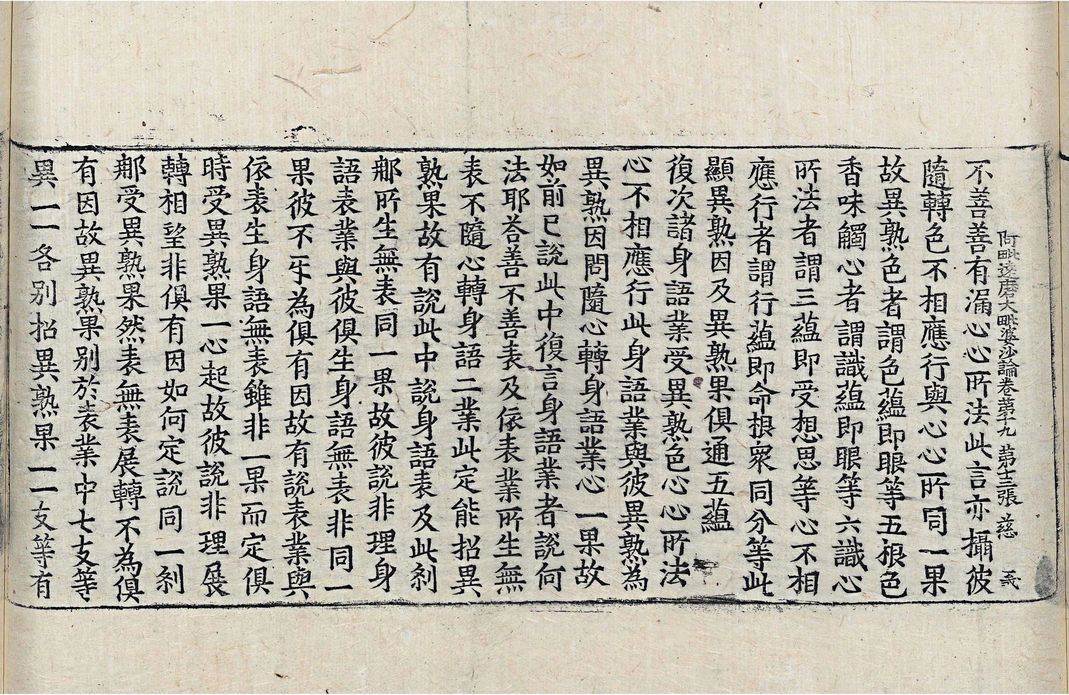 阿毗達磨大毗婆沙論卷第十九 第十三張 慈 義
不善善有漏心心所法此言亦攝彼
隨轉色不相應行與心心所同一果
故異熟色者謂色蘊即眼等五根色
香味觸心者謂識蘊即眼等六識心
所法者謂三蘊即受想思等心不相
應行者謂行蘊即命根衆同分等此
顯異熟因及異熟果俱通五蘊
復次諸身語業受異熟色心心所法
心不相應行此身語業與彼異熟為
異熟因問隨心轉身語業心一果故
如前已說此中復言身語業者說何
法耶荅善不善表及依表業所生無
表不隨心轉身語二業此定能招異
熟果故有說此中說身語表及此刹
那所生無表同一果故彼說非理身
語表業與彼俱生身語無表非同一
果彼不㸦為俱有因故有說表業與
依表生身語無表雖非一果而定俱
時受異熟果一心起故彼說非理展
轉相望非俱有因如何定說同一刹
那受異熟果然表無表展轉不為俱
有因故異熟果別於表業中七支等
異一一各別招異熟果一一支等有